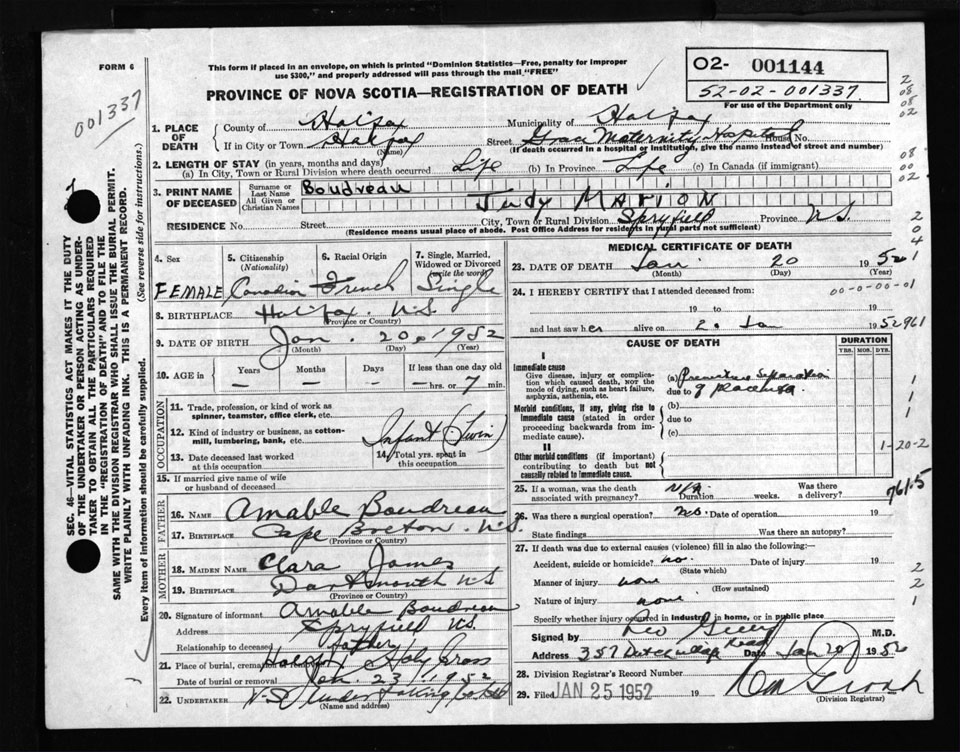 FORM 6
This form if placed in an envelope, on which is printed "Dominion Statistics—Free, penalty for improper
use $300," and properly addressed will pass through the mail "FREE"
PROVINCE OF NOVA SCOTIA—REGISTRATION OF DEATH
02- 001144
52-02-001337
For use of the Department only
001337
SEC. 46—VITAL STATISTICS ACT MAKES IT THE DUTY
OF THE UNDERTAKER OR PERSON ACTING AS UNDER-
TAKER TO OBTAIN ALL THE PARTICULARS REQUIRED
IN THE "REGISTRATION OF DEATH" AND TO FILE THE
SAME WITH THE DIVISION REGISTRAR WHO SHALL ISSUE THE BURIAL PERMIT.
WRITE PLAINLY WITH UNFADING INK. THIS IS A PERMANENT RECORD.
Every item of information should be carefully supplied. (See reverse side for instructions.)
1. PLACE OF DEATH County of Halifax Municipality of Halifax
If in City or Town Halifax (Name) Street Grace Maternity Hospital House No.
(If death occurred in a hospital or institution, give the name instead of street and number)
2. LENGTH OF STAY (in years, months and days)
(a) In City, Town or Rural Division where death occurred Life (b) In Province Life (c) In Canada (if immigrant)
3. PRINT NAME OF DECEASED Surname or Last Name Boudreau
All Given or Christian Names Judy MARION
RESIDENCE No. Street City, Town or Rural Division Spryfield Province N.S.
(Residence means usual place of abode. Post Office Address for residents in rural parts not sufficient)
4. Sex FEMALE
5. Citizenship (Nationality) Canadian
6. Racial Origin French
7. Single, Married, Widowed or Divorced (write the word) Single
8. BIRTHPLACE Halifax. N.S.
(Province or Country)
9. DATE OF BIRTH Jan. 20. 1952
(Month) (Day) (Year)
10. AGE in Years — Months — Days — If less than one day old — hrs. or 7 min.
OCCUPATION
11. Trade, profession, or kind of work as spinner, teamster, office clerk, etc.
12. Kind of industry or business, as cotton-mill, lumbering, bank, etc. Infant (Twin)
13. Date deceased last worked at this occupation
14. Total yrs. spent in this occupation
15. If married give name of wife or husband of deceased
FATHER
16. NAME Amable Boudreau
17. BIRTHPLACE Cape Breton. N.S.
(Province or Country)
MOTHER
18. MAIDEN NAME Clara James
19. BIRTHPLACE Dartmouth N.S
(Province or Country)
20. Signature of informant Amable Boudreau
Address Spryfield N.S.
Relationship to deceased Father
21. Place of burial, cremation or removal Halifax Holy Cross
Date of burial or removal Jan. 23. 1952
22. UNDERTAKER N.S Undertaking Co
(Name and address)
MEDICAL CERTIFICATE OF DEATH
23. DATE OF DEATH Jan 20 1952
(Month) (Day) (Year)
24. I HEREBY CERTIFY that I attended deceased from:
00-0-00-01
19 to 19
and last saw her alive on 20 Jan 1952
961
CAUSE OF DEATH
DURATION
YRS. MOS. DYS.
I
Immediate cause
Give disease, injury or complication which caused death, NOT the mode of dying, such as heart failure, asphyxia, asthenia, etc.
(a) Premature Separation
due to of placenta
Morbid conditions, if any, giving rise to immediate cause (stated in order proceeding backwards from immediate cause).
(b)
due to
(c)
II
Other morbid conditions (if important) contributing to death but not causally related to immediate cause.
1-20-2
761.5
25. If a woman, was the death associated with pregnancy? N/A Duration weeks. Was there a delivery?
26. Was there a surgical operation? no. Date of operation 19
State findings Was there an autopsy?
27. If death was due to external causes (violence) fill in also the following:—
Accident, suicide or homicide? no. Date of injury 19
(State which)
Manner of injury none
(How sustained)
Nature of injury none
Specify whether injury occurred in industry, in home, or in public place
Signed by Leo Green M.D.
Address 357 Dutch Village Road Date Jan 20 1952
28. Division Registrar's Record Number
29. Filed JAN 25 1952
(Division Registrar)